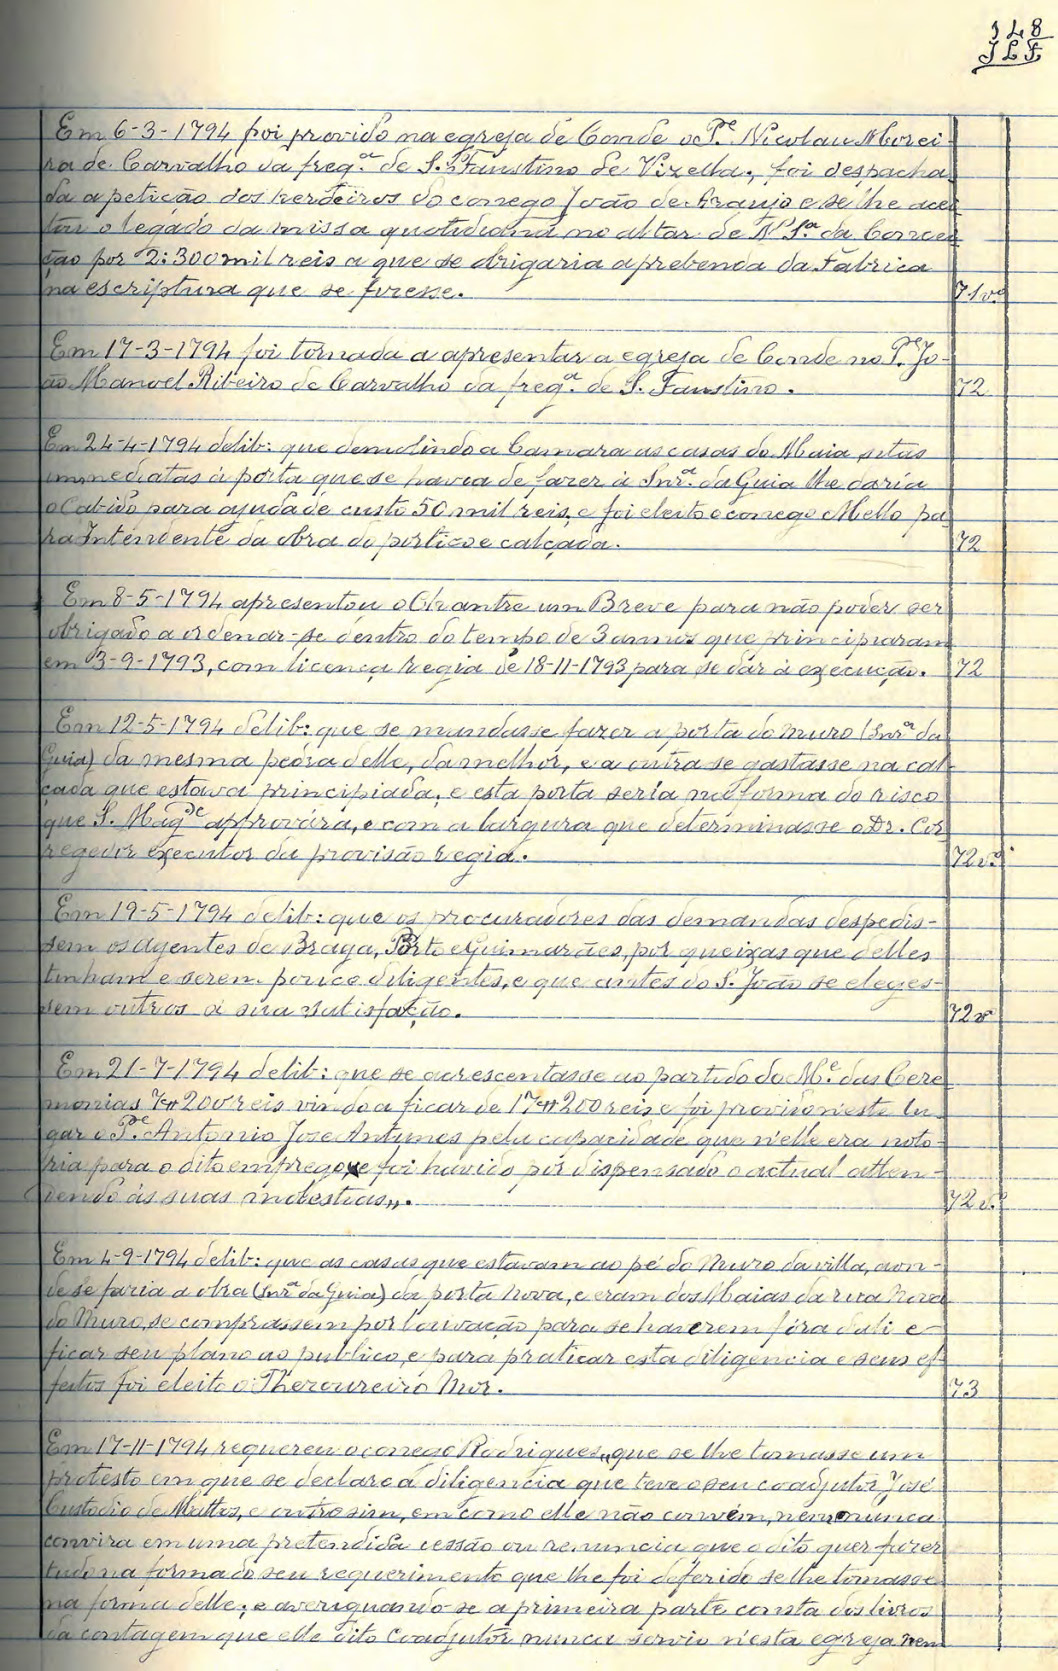 348
JLF
Em 6-3-1794 foi provido na egreja de Conde o Pe. Nicolau Morei-
ra de Carvalho da freg.a de S. Faustino de Vizella, foi despacha-
da a petição dos herdeiros do conego João de Araujo e se lhe acei-
tou o legado da missa quotidiana no altar de N. Sr.a da Concei-
ção por 2:300 mil reis a que se obrigaria a prebenda da Fabrica
na escriptura que se fizesse. 71v.o
Em 17-3-1794 foi tornada a apresentar a egreja de Conde no Pe. Jo-
ão Manoel Ribeiro de Carvalho da freg.a de S. Faustino. 72
Em 24-4-1794 delib: que demolindo a Camara as casas do Maia sitas
immediatas á porta que se havia de fazer á Snr.a da Guia lhe daria
o Cabido para ajuda de custo 50 mil reis, e foi eleito o conego Mello pa-
ra Intendente da obra do portico e calçada. 72
Em 8-5-1794 apresentou o Chantre um Breve para não poder ser
obrigado a ordenar-se dentro do tempo de 3 annos que principiaram
em 3-9-1793, com licença regia de 18-11-1793 para se dár á execução. 72
Em 12-5-1794 delib: que se mandasse fazer a porta do muro (Snr.a da
Guia) da mesma pedra delle, da melhor, e a outra se gastasse na cal-
çada que estava principiada, e esta porta seria na forma do risco
que S. Mag.de approvára, e com a largura que determinasse o Dr. Cor-
regedor executor da provisão regia. 72v.o
Em 19-5-1794 delib: que os procuradores das demandas despedis-
sem os agentes de Braga, Porto e Guimarães, por queixas que delles
tinham e serem pouco diligentes, e que antes do S. João se eleges-
sem outros á sua satisfação. 72v
Em 21-7-1794 delib: que se acrescentasse ao partido do M.e das Cere-
monias 7#200 reis vindo a ficar de 17#200 reis e foi provido n'este lu-
gar o Pe. Antonio Jose Antunes pela capacidade que n'elle era noto-
ria para o dito emprego, e foi havido por dispensado o actual atten-
dendo ás suas molestias,,. 72v.o
Em 4-9-1794 delib: que as casas que estavam ao pé do muro da villa, aon-
de se faria a obra (Snr.a da Guia) da porta nova, e eram dos Maias da rua Nova
do Muro, se comprassem por louvação para se haverem fóra dali e
ficar seu plano ao publico, e para praticar esta diligencia e seus ef-
feitos foi eleito o Thezoureiro Mor. 73
Em 17-11-1794 requereu o conego Rodrigues,, que se lhe tomasse um
protesto em que se declare á diligencia que teve o seu coadjutor José
Custodio de Mattos, e outro sim, em como elle não convém, nem nunca
convira em uma pretendida cessão ou renuncia que o dito quer fazer
tudo na forma do seu requerimento que lhe foi deferido se lhe tomasse
na forma delle; e averiguando-se a primeira parte consta dos livros
da contagem que elle dito Coadjutor nunca servio n'esta egreja nem